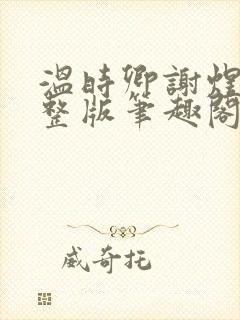 溫時卿謝煌
整版筆趣閣
威奇托